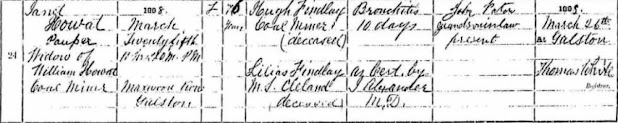 Janet
Howat
Pauper
Widow of
William Howat
Coal Miner
24
1908.
March
Twenty fifth
P.M.
Maxwood Row
Galston
F
76
Years
Hugh Findlay
Coal Miner
(deceased)
Lilias Findlay
M.S. Cleland
deceased
Bronchitis
10 days
as Cert. by
J Alexander
M.D.
John
Grandson in law
present
1908.
March 26th
at Galston
Thomas White
Registrar.